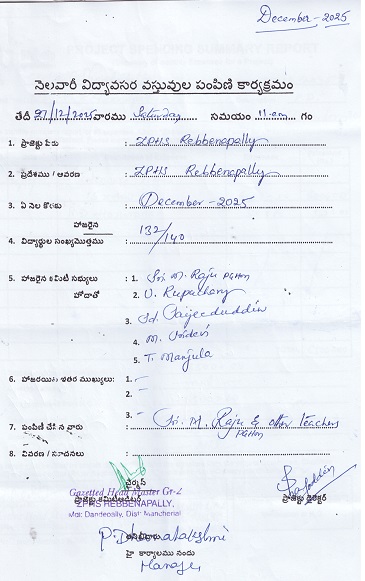 December - 2025
నెలవారీ విద్యావసర వస్తువుల పంపిణి కార్యక్రమం
తేదీ 27/12/2025 వారము Saturday సమయం 11 am గం
1. ప్రాజెక్టు పేరు : ZPHS Rebbenapally
2. ప్రదేశము / ఆవరణ : ZPHS Rebbenapally
3. ఏ నెల కొరకు : December - 2025
హాజరైన
4. విద్యార్థుల సంఖ్య/మొత్తము : 132/140
5. హాజరైన కమిటి సభ్యులు : 1. Sri. M. Raju PGHM
హోదాతో 2. U. Rupachary
3. Sd.
4. M. Sridevi
5. T. Manjula
6. హాజరయిన ఇతర ముఖ్యులు: 1. -
2. -
3. -
7. పంపిణీ చేసిన వారు : Sri. M. Raju & other Teachers
PGHM
8. వివరణ / సూచనలు :
చైర్మన్
Gazetted Head Master Gr-2
ప్రాజెక్టు డైరెక్టర్
ZPHS REBBENAPALLY,
Mdl: Dandepally, Dist: Mancherial
P. Dhanalakshmi
హై కార్యాలము నందు
Manager